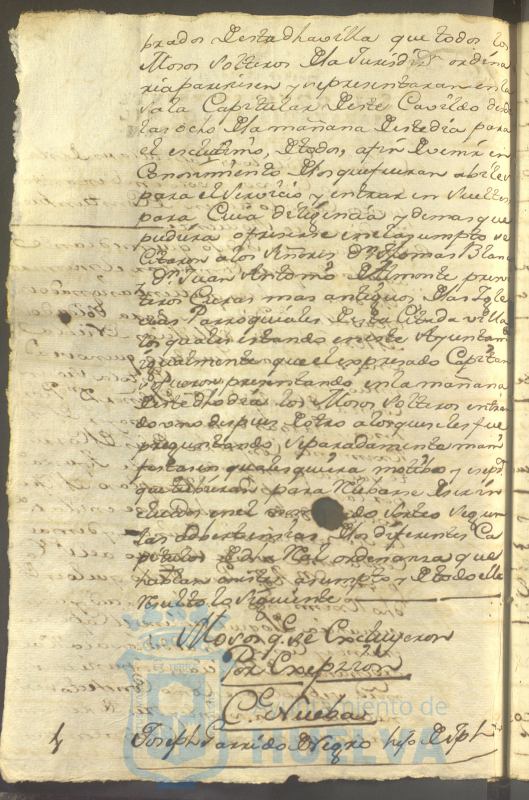 prados de esta dha villa que todos los
Mosos solteros de la Jurisdn. ordina
ria paresiesen y se presentaran en la
sala Capitular de este Cavildo desde
las ocho de la mañana de este dia para
el escrutinio, de todos, a fin de venir en
Conosimiento de los que fueran abiles
para el Servicio y entrar en Sueltes
para Cuia diligencia y demas que
pudiera ofreserse en el asumpto se
Citaron a los Señores Dn. Thomas Blanco
y Dn. Juan Antonio del Monte presvi
teros Curas mas antiguos de las Igle
cias Parroquiales de esta Citada villa
los quales estando en este Ayuntamto.
igualmente que el expresado Capitan
se fueron presentando en la mañana
de este dho dia los Mosos Solteros entran
do uno despues de otro a los que se les fue
preguntando separadamente mani
festasen qualesquiera motibo y
que tubieran para no ser in
cluidos en el sorteo segun
las advertencias de los diferentes Ca
pitulos de la Rl. ordenanza que
hablan en este asumpto y de todo ello
resulto lo siguiente
Mosos q. se Excluyeron
Por Exepzion
C. Nueba
Joseph Garrido Negro hijo de Jph
Ayuntamiento de
HUELVA